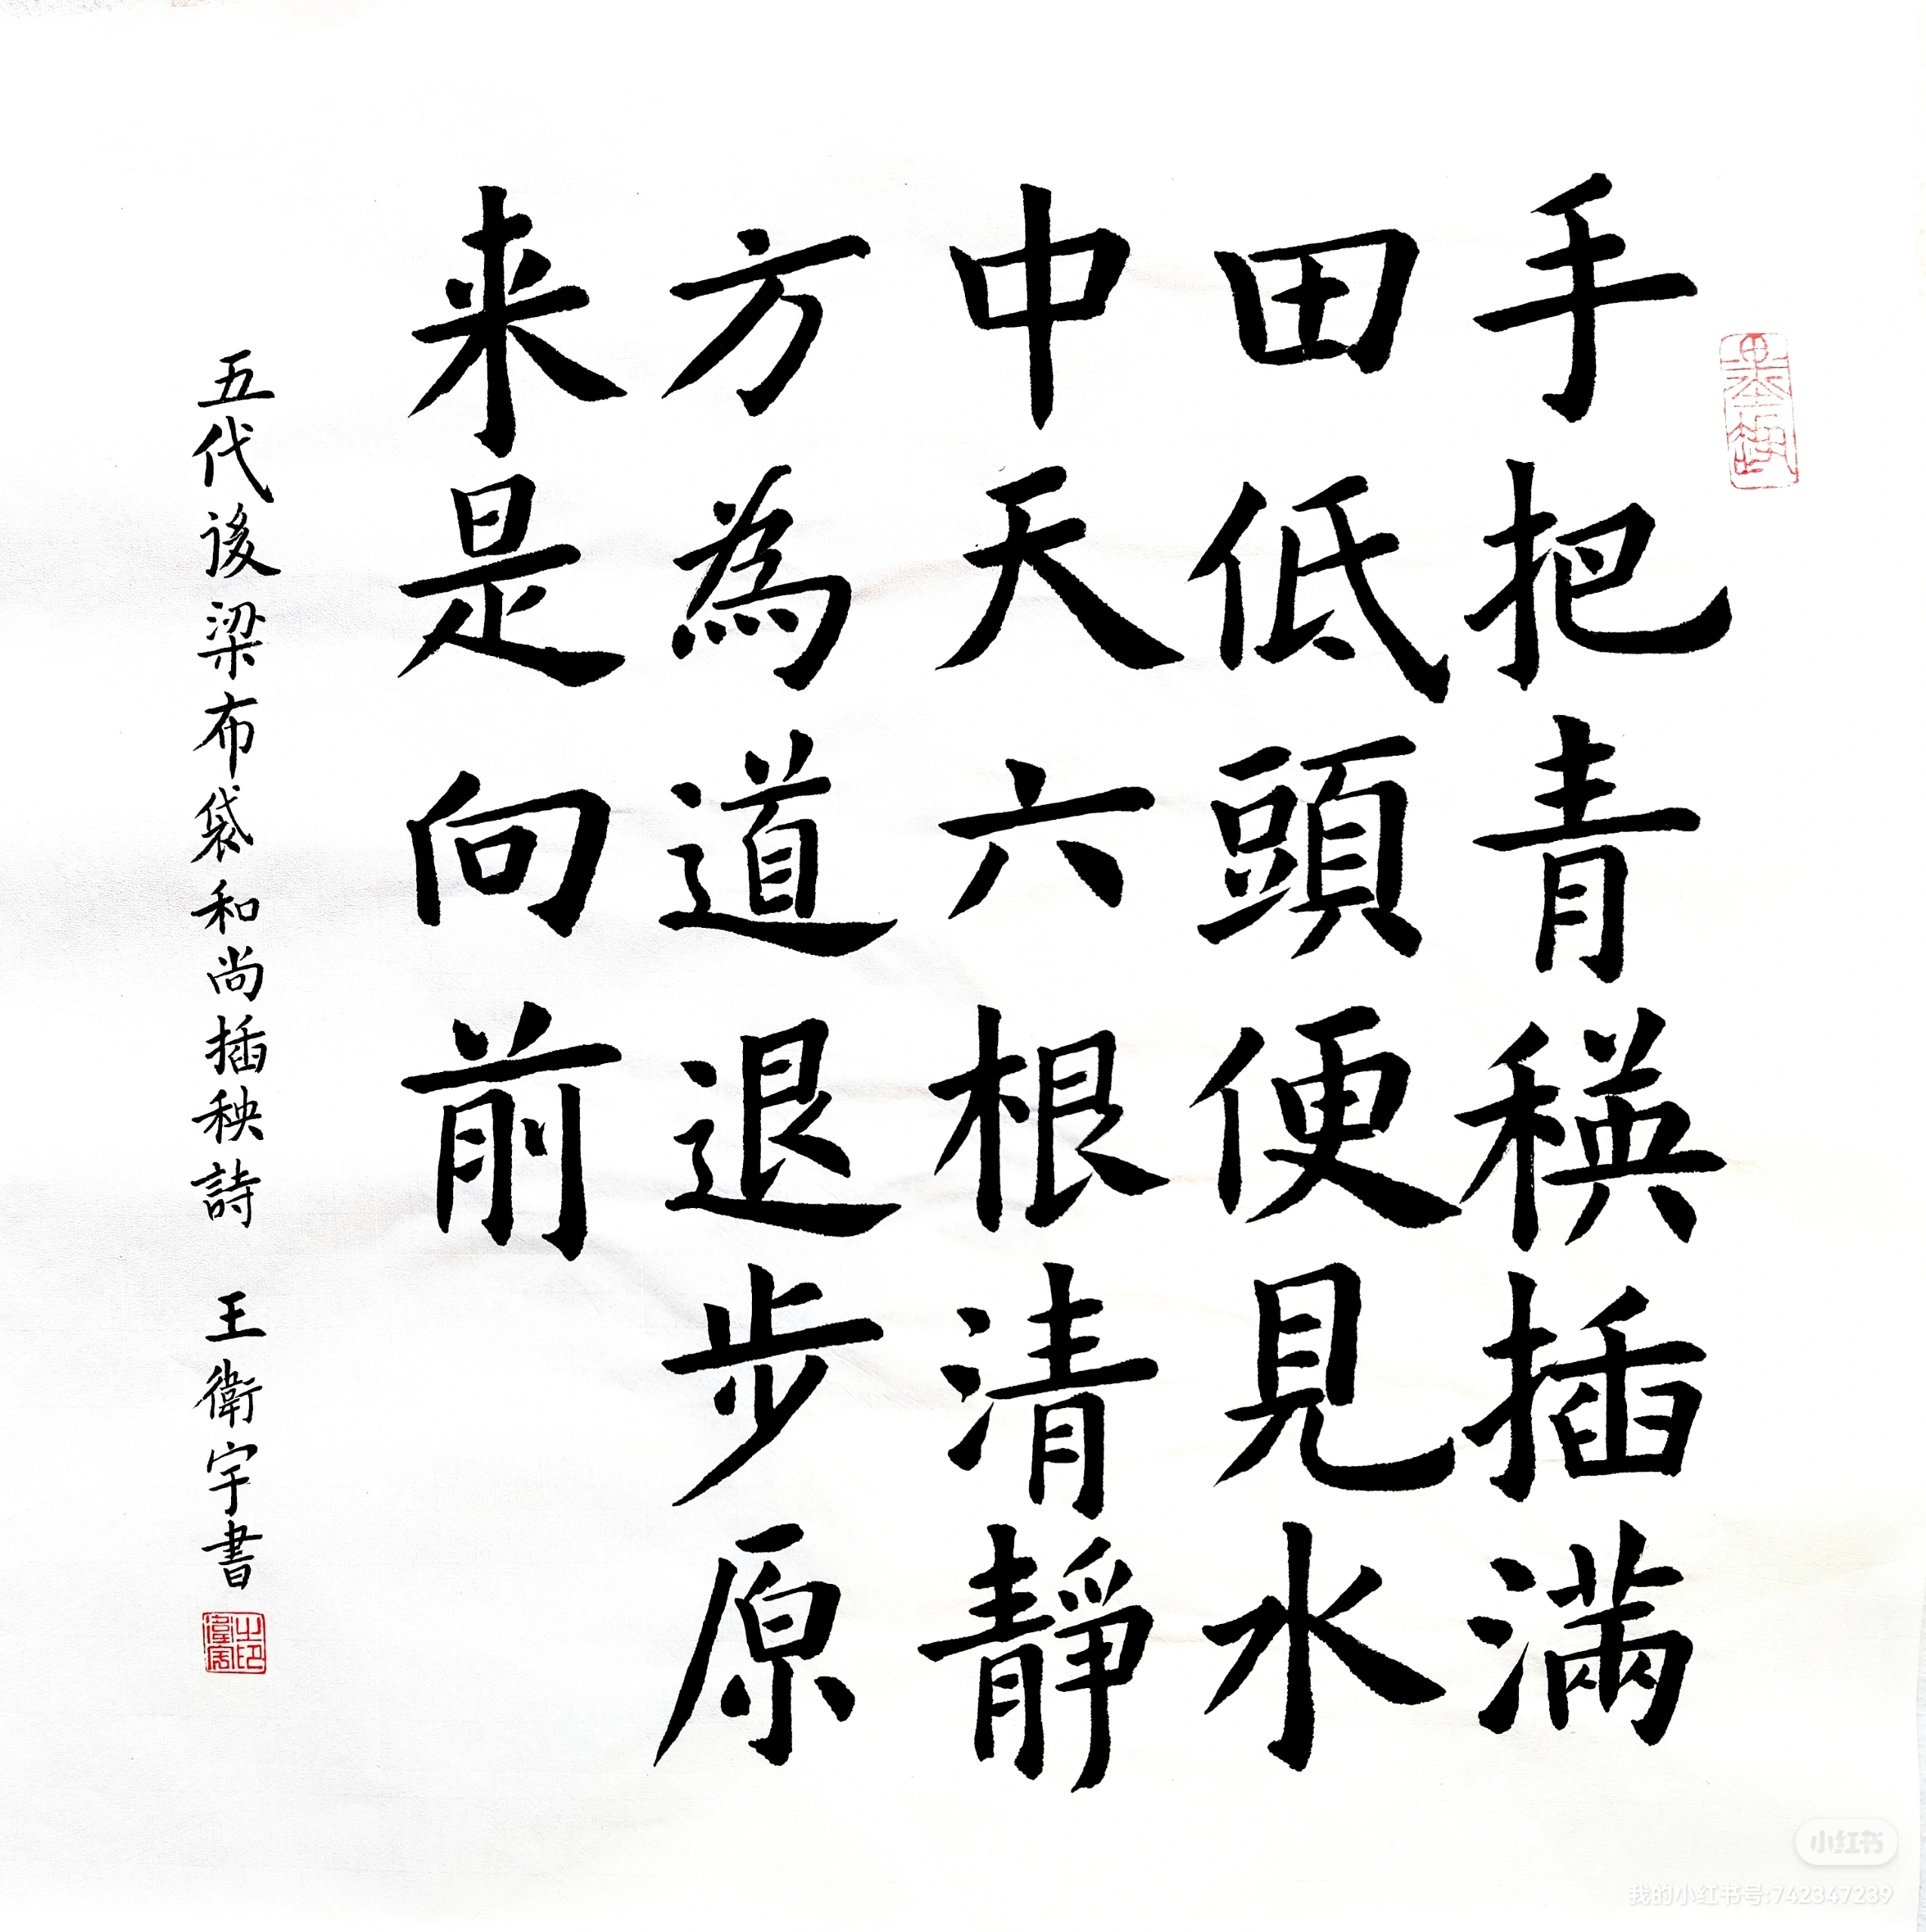 手把青秧插满
田低頭便見水
中天六根清靜
方為道退步原
来是向前
五代後梁布袋和尚插秧詩 王衛宇書
小红书
我的小红书号:742347239